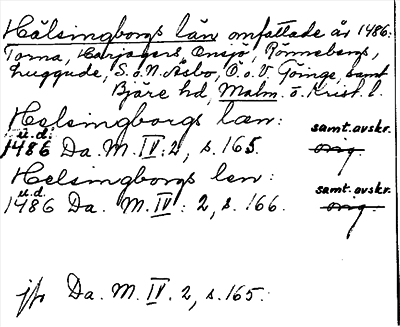 Hälsingborgs län omfattade år 1486:
Torna, Harjagers, Onsjö, Rönnebergs,
Luggude, S. o. N. Åsbo, Ö. o. V. Göinge, samt
Bjäre hd, Malm. o. Krist. l.
Helsingborgs læn: samt. avskr.
u.d.
1486 Da. M. IV:2, s. 165. orig.
Helsingborgs len: samt. avskr.
u.d.
1486 Da. M. IV: 2, s. 166. orig.
jfr Da. M. IV. 2, s. 165.